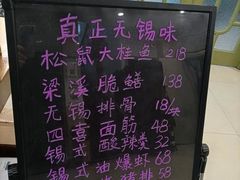 真正无锡味
松鼠大桂鱼 218
梁溪脆鳝 138
无锡排骨 18/块
四喜面筋 48
锡式酸辣羹 32
锡式油爆虾 68
猪排 58